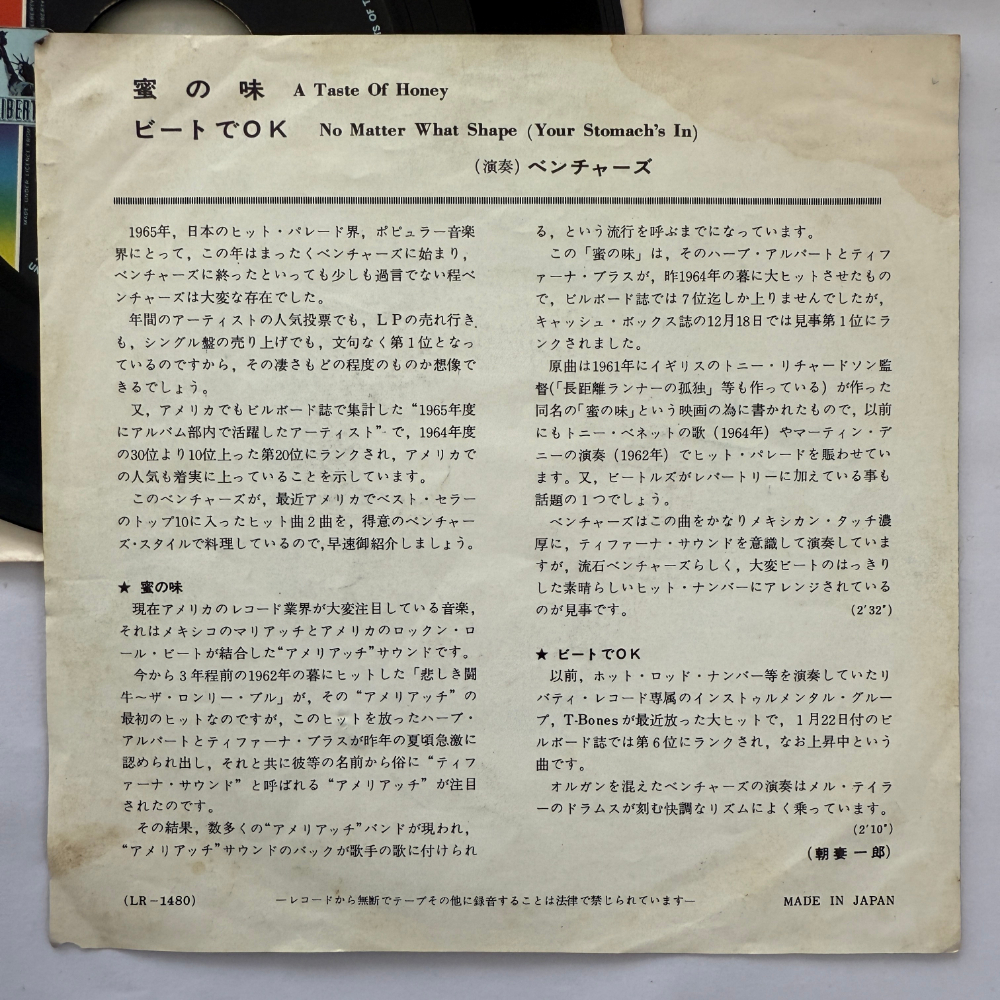 蜜の味 A Taste Of Honey
ビートでOK No Matter What Shape (Your Stomach's In)
(演奏) ベンチャーズ
1965年，日本のヒット・パレード界，ポピュラー音楽
界にとって，この年はまったくベンチャーズに始まり，
ベンチャーズに終ったといっても少しも過言でない程ベ
ンチャーズは大変な存在でした。
年間のアーティストの人気投票でも，LPの売れ行き
も，シングル盤の売り上げでも，文句なく第1位となっ
ているのですから，その凄さもどの程度のものか想像で
きるでしょう。
又，アメリカでもビルボード誌で集計した“1965年度
にアルバム部内で活躍したアーティスト”で，1964年度
の30位より10位上った第20位にランクされ，アメリカで
の人気も着実に上っていることを示しています。
このベンチャーズが，最近アメリカでベスト・セラー
のトップ10に入ったヒット曲2曲を，得意のベンチャー
ズ・スタイルで料理しているので，早速御紹介しましょう。
★ 蜜の味
現在アメリカのレコード業界が大変注目している音楽，
それはメキシコのマリアッチとアメリカのロックン・ロ
ール・ビートが結合した“アメリアッチ”サウンドです。
今から3年程前の1962年の暮にヒットした「悲しき闘
牛～ザ・ロンリー・ブル」が，その“アメリアッチ”の
最初のヒットなのですが，このヒットを放ったハーブ・
アルパートとティファーナ・ブラスが昨年の夏頃急激に
認められ出し，それと共に彼等の名前から俗に“ティフ
ァーナ・サウンド”と呼ばれる“アメリアッチ”が注目
されたのです。
その結果，数多くの“アメリアッチ”バンドが現われ，
“アメリアッチ”サウンドのバックが歌手の歌に付けられ
る，という流行を呼ぶまでになっています。
この「蜜の味」は，そのハーブ・アルパートとティフ
ァーナ・ブラスが，昨1964年の暮に大ヒットさせたもの
で，ビルボード誌では7位迄しか上りませんでしたが，
キャッシュ・ボックス誌の12月18日では見事第1位にラ
ンクされました。
原曲は1961年にイギリスのトニー・リチャードソン監
督(「長距離ランナーの孤独」等も作っている) が作った
同名の「蜜の味」という映画の為に書かれたもので，以前
にもトニー・ベネットの歌 (1964年) やマーティン・デ
ニーの演奏 (1962年) でヒット・パレードを賑わせてい
ます。又，ビートルズがレパートリーに加えている事も
話題の1つでしょう。
ベンチャーズはこの曲をかなりメキシカン・タッチ濃
厚に，ティファーナ・サウンドを意識して演奏していま
すが，流石ベンチャーズらしく，大変ビートのはっきり
した素晴らしいヒット・ナンバーにアレンジされている
のが見事です。 (2′32″)
★ ビートでOK
以前，ホット・ロッド・ナンバー等を演奏していたリ
バティ・レコード専属のインストゥルメンタル・グルー
プ，T-Bonesが最近放った大ヒットで，1月22日付のビ
ルボード誌では第6位にランクされ，なお上昇中という
曲です。
オルガンを混えたベンチャーズの演奏はメル・テイラ
ーのドラムスが刻む快調なリズムによく乗っています。
(2′10″)
(朝妻一郎)
(LR-1480) —レコードから無断でテープその他に録音することは法律で禁じられています— MADE IN JAPAN